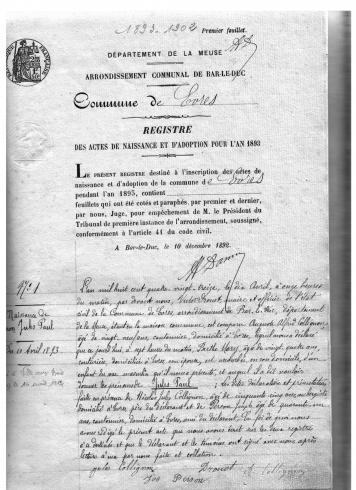 1893-1902 Premier feuillet.
RÉPUBLIQUE FRANÇAISE
DÉPARTEMENT DE LA MEUSE
ARRONDISSEMENT COMMUNAL DE BAR-LE-DUC
Commune de Èvres
REGISTRE
DES ACTES DE NAISSANCE ET D'ADOPTION POUR L'AN 1893
LE PRÉSENT REGISTRE destiné à l'inscription des actes de
naissance et d'adoption de la commune de Èvres
pendant l'an 1893, contient
feuillets qui ont été cotés et paraphés, par premier et dernier,
par nous, Juge, pour empêchement de M. le Président du
Tribunal de première instance de l'arrondissement, soussigné,
conformément à l'article 41 du code civil.
A Bar-le-Duc, le 10 décembre 1892.
N° 1
L'an mil huit cent quatre vingt treize, le dix Avril, à onze heures
Naissance de
du matin, par devant nous maire et officier de l'état
Jules Paul
civil de la Commune de Èvres, arrondissement de Bar-le-Duc, département
de la Meuse, étant à la maison commune, est comparu Auguste Alfred Collignon,
Du 10 Avril 1893
âgé de vingt neuf ans, cantonnier, domicilié à Èvres, lequel nous a déclaré
que à sept heures du matin, âgée de vingt quatre ans,
domiciliée à Èvres son épouse, est accouchée en son domicile, d'un
enfant du sexe masculin qu'il nous présente, et auquel il a dit vouloir
donner les prénoms de Jules Paul; les dites déclaration et présentation
faites en présence de Nicolas Jules Collignon, âgé de cinquante cinq ans,
domicilié à Èvres, père du déclarant et de Person, âgé de quarante
ans, cantonnier, domicilié à Èvres, ami du déclarant. En foi de quoi nous
avons rédigé le présent acte que nous avons écrit sur les deux registres
et que le déclarant et les témoins ont signé avec nous après
lecture à eux par nous faite et collation.
Jules Collignon Drouot A. Collignon
Person